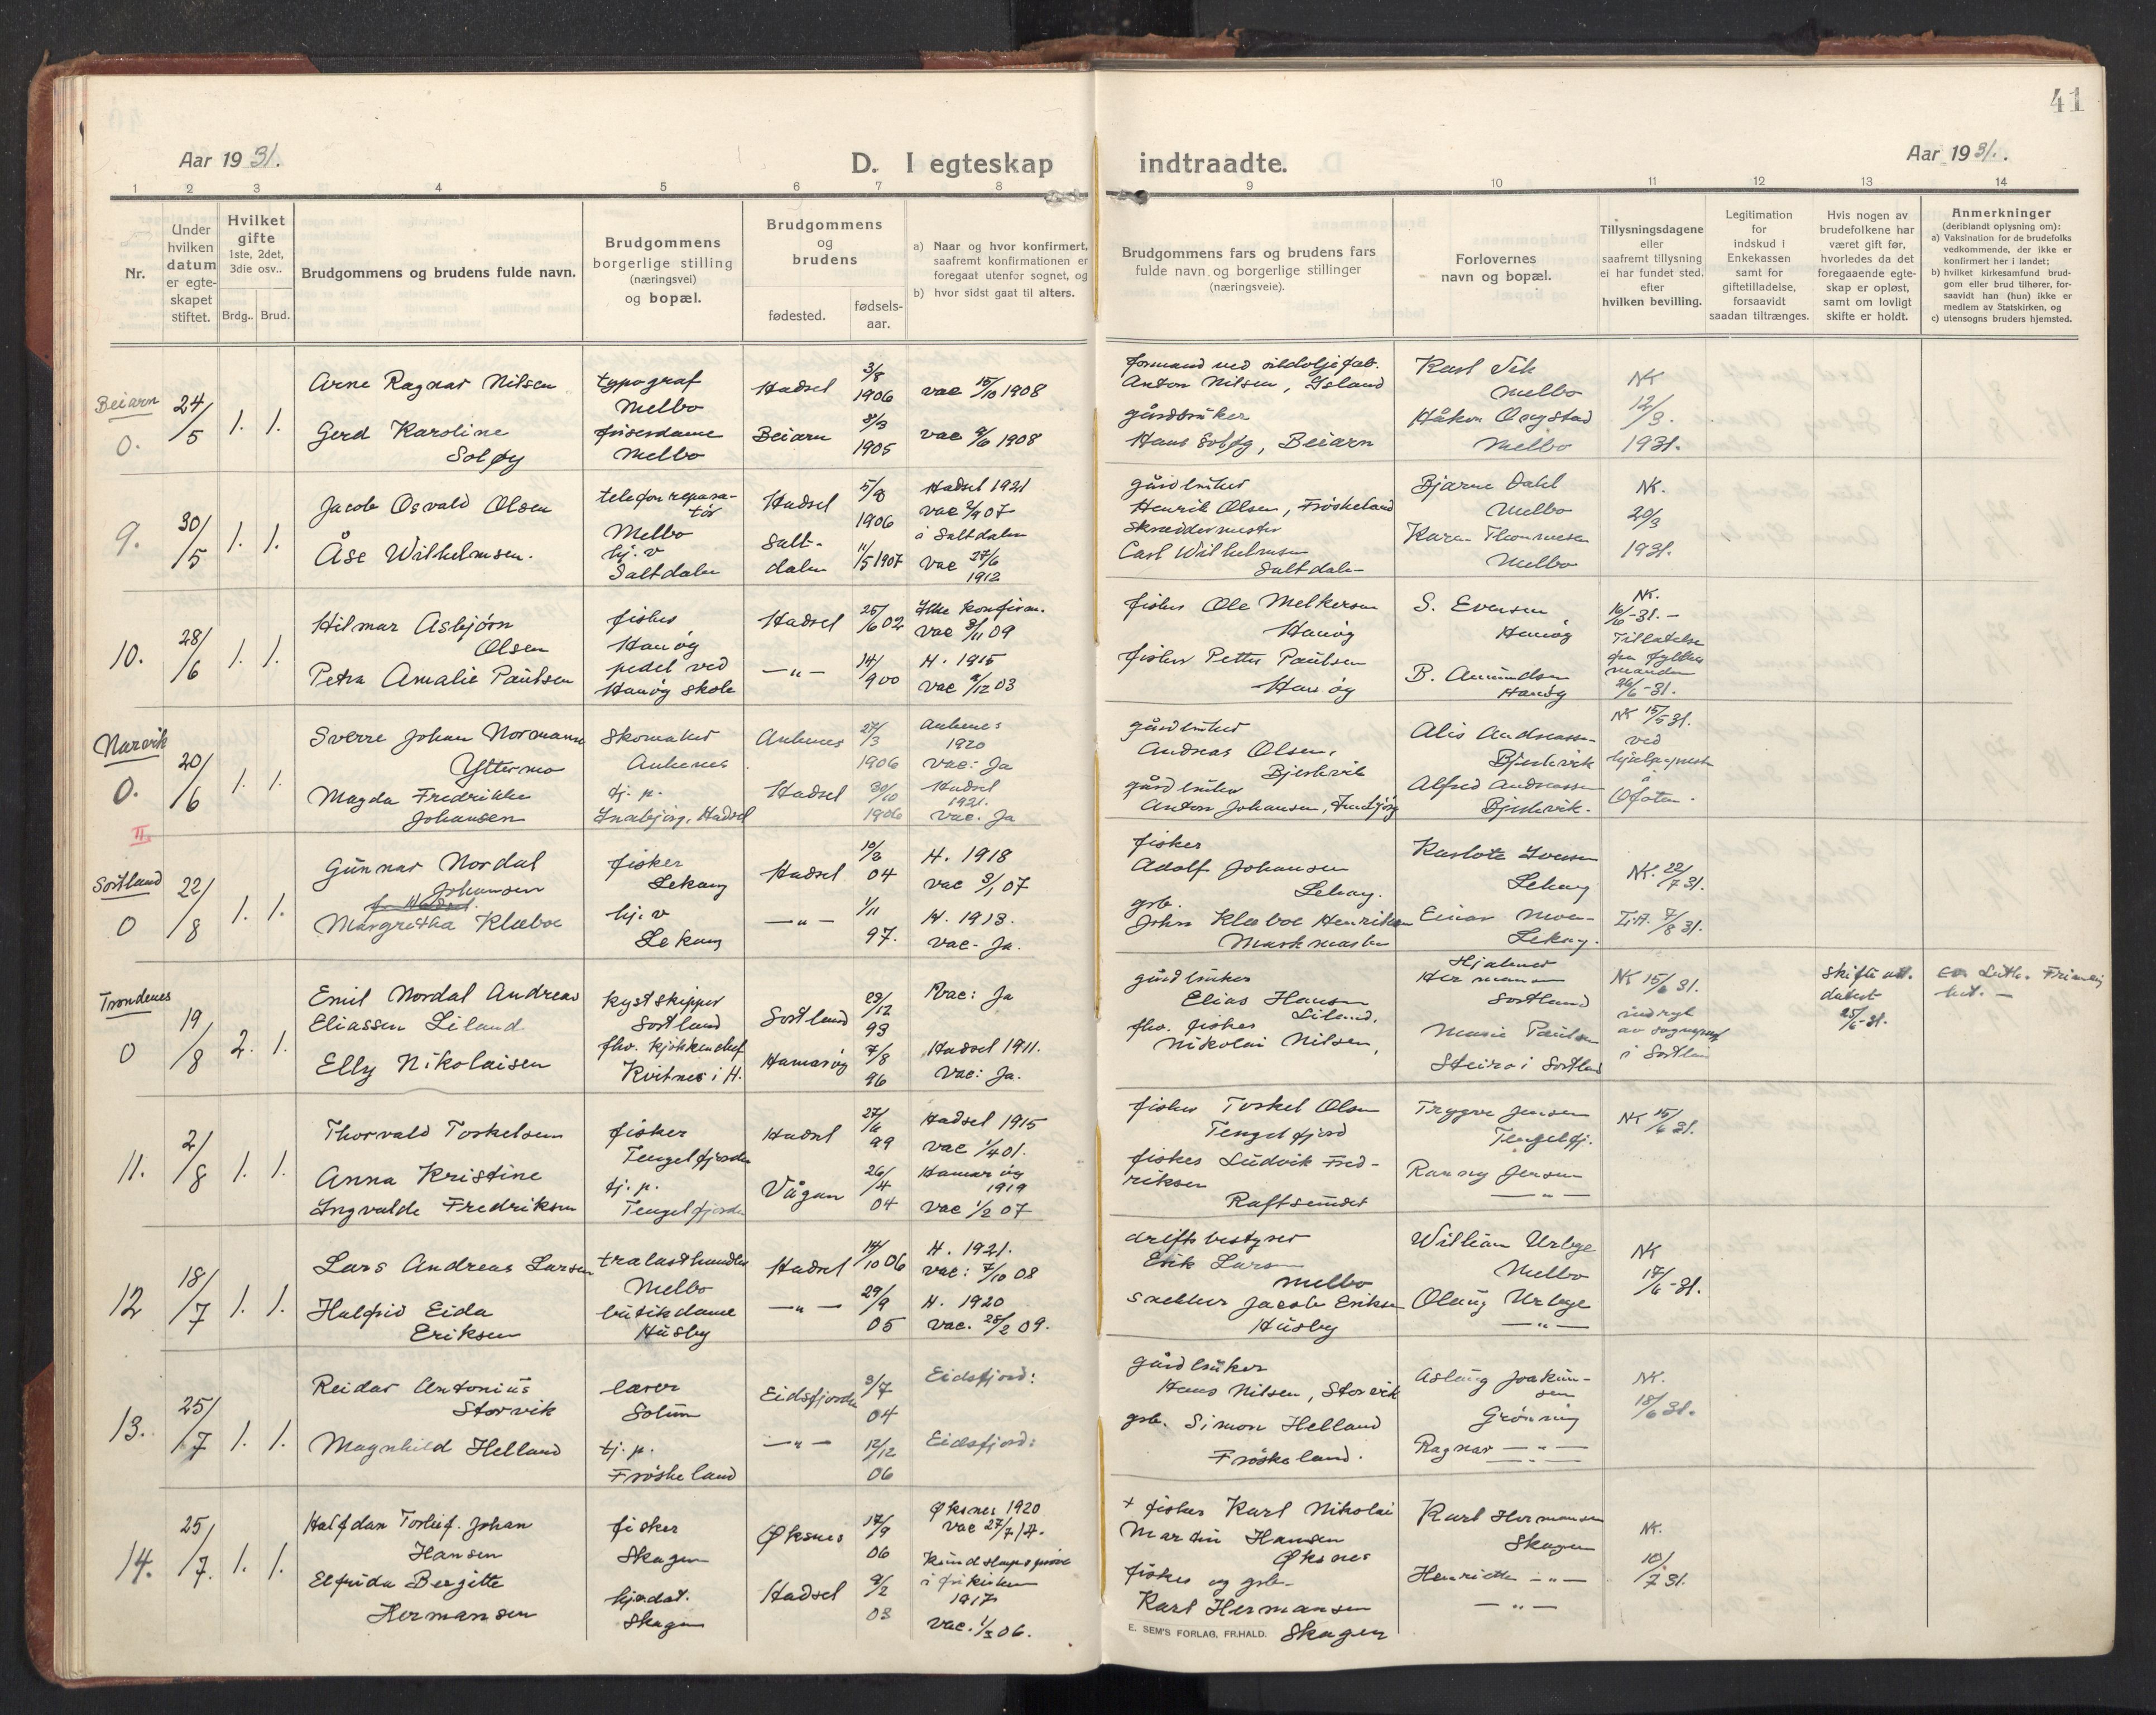 41
Aar 1931.
D. I egteskap indtraadte.
Aar 1931.
1 2 3 4 5 6 7 8 9 10 11 12 13 14
Nr.
Under hvilken datum er egte-skapet stiftet.
Hvilket gifte
1ste, 2det, 3die osv..
Brdg.. Brud.
Brudgommens og brudens fulde navn.
Brudgommens borgerlige stilling
(næringsvei)
og bopæl.
Brudgommens og brudens
fødested.
fødsels-aar.
a) Naar og hvor konfirmert, saafremt konfirmationen er foregaat utenfor sognet, og
b) hvor sidst gaat til alters.
Brudgommens fars og brudens fars
fulde navn og borgerlige stillinger
(næringsveie).
Forlovernes
navn og bopæl.
Tillysningsdagene
eller
saafremt tillysning
ei har fundet sted.
efter
hvilken bevilling.
Legitimation
for
indskud i
Enkekassen
samt for
giftetilladelse,
forsaavidt
saadan tiltrænges.
Hvis nogen av
brudefolkene har
været gift før,
hvorledes da det
foregaaende egte-
skap er opløst,
samt om lovligt
skifte er holdt.
Anmerkninger
(deriblandt oplysning om):
a) Vaksination for de brudefolks vedkommende, der ikke er konfirmert her i landet;
b) hvilket kirkesamfund brud-gom eller brud tilhører, for-saavidt han (hun) ikke er medlem av Statskirken, og
c) utensogns bruders hjemsted.
Beiarn
0.
24/5
1. 1.
Arne Ragnar Nilsen
Gerd Karoline
Soløy
typograf
Melbo
frisørdame
Melbo
Hadsel
Beiarn
3/8
1906
1905
vac 15/10 1908
vac 9/6 1908
Anton Nilsen,
gårdbruker
Hans Soløy, Beiarn
Melbo
Håkon Ongstad
Melbo
NK
12/3.
1931.
9.
30/5
1. 1.
Jacob Osvald Olsen
Åse Wilhelmsen.
telefonrepara-
tør
Melbo
hj. v
Saltdalen
Hadsel
Salt-
dalen
5/8
1906
11/5 1907
Hadsel 1921
i Saltdalen
vac 27/6
1912
gårdbruker
Henrik Olsen, Frøskeland
Skræddermester
Carl Wilhelmsen
Saltdalen
Bjarne Dahl
Melbo
Melbo
NK.
20/3
1931.
10.
28/6
1. 1.
Hilmar Asbjørn
Olsen
Petra Amalie Paulsen
fisker
Hanøy
pedel ved
Hanøy skole
Hadsel
— " —
25/6 02
14/9 00
Ikke konfirm.
vac 3/11 09
H. 1915
fisker Ole Melkersen
Hanøy
fisker Petter Paulsen
Hanøy
S. Evensen
Hanøy
B. Amundsen
Hanøy
NK.
16/6-31.-
Tillatelse
fra fylkes
manden
26/6-31.
Narvik
0.
20/6
1. 1.
Sverre Johan Normann
Yttermo
Magda Fredrikke
Johansen
Skomaker
Ankenes
tj. p.
Hadsel
Ankenes
Hadsel
27/3
1906
30/10
1906
Ankenes
1920
vac: Ja
Hadsel
1921.
vac. Ja
gårdbruker
Andreas Olsen,
Bjerkvik
gårdbruker
Anton Johansen,
Bjerkvik
Alfred Andreassen
Bjerkvik.
NK 15/5 31.
ved
hjælpeprest
Ofoten.
II.
Sortland
0
22/8
1. 1.
Gunnar Nordal
Johansen
Margretha Klæboe
fisker
Lekang
hj. v
Lekang
Hadsel
— " —
10/3
04
1/11
97.
H. 1918
vac 3/1 07
H. 1913.
vac - Ja.
fisker
Adolf Johansen
Lekang.
grb.
John Klæboe Henriksen
Lekang
Einar Moen
Lekang.
NK. 22/7 31.
7/8 31.
Trondenes
0
19/8
2. 1.
Emil Nordal Andreas
Eliassen Liland
Elly Nikolaisen
kystskipper
Sortland
fhv. kjøkkenchef
Kvitnes i H.
Sortland
Hamarøy
29/12
93
7/8
96
vac: Ja
Hadsel 1911.
vac: Ja.
gårdbruker
Elias Hansen
Liland.
fhv. fisker
Nikolai Nilsen,
Hjalmar
Hermann
Sortland
Marie Paulsen
Steiro i Sortland
NK 15/6 31.
av sogneprest
i Sortland
Skifte att.
datert
25/6-31.
11.
2/8
1. 1.
Thorvald Torkelsen
Anna Kristine
Ingvalde Fredriksen
fisker
Tengelfjorden
tj. p.
Tengelfjorden
Hadsel
Vågan
27/6
99
26/4
04
Hadsel 1915
vac 1/4 01.
Hamarøy
1919
vac 1/2 07
fisker Torkel Olsen
Tengelfjord
fisker Ludvik Fred-
riksen
Raftsundet
Trygve Jensen
Tengelfj.
Jensen
— " —
NK 15/6 31.
12
18/7
1. 1.
Lars Andreas Larsen
Halfrid Eida
Eriksen
trælasthandler
Melbo
butikdame
Husby
Hadsel
— " —
14/10 06
29/9
05
H. 1921.
vac: 7/10 08
H. 1920
vac. 28/2 09.
driftsbestyrer
Erik Larsen
Melbo
snekker Jacob Eriksen
Husby
William Urbye
Melbo
Olaug Urbye
— " —
NK
17/6-31.
13.
25/7
1. 1.
Reidar Antonius
Storvik
Magnhild Helland
lærer
Solum
tj. p.
Frøskeland
Eidsfjorden
— " —
3/7
04
12/12
06
Eidsfjord:
Eidsfjord:
gårdbruker
Hans Nilsen, Storvik
grb. Simon Helland
Frøskeland.
Aslaug Joakim-
sen
Grønning
Ragnar — " —
NK.
18/6 31.
14.
25/7.
1. 1.
Halfdan Torleif. Johan
Hansen
Elfrida Bergitte
Hermansen
fisker
Skagen
Skagen
Øksnes
Hadsel
17/9
06
9/2
03
Øksnes 1920
vac 27/7 17.
Kundskapsprøve
i frikirken
1917
vac. 1/3 06.
+ fisker Karl Nikolai
Martin Hansen
Øksnes
fisker og grb.
Karl Hermansen
Skagen
Karl Hermansen
Skagen
Henriette — " —
— " —
NK.
10/7 31.
E. SEM'S FORLAG, FR.HALD.